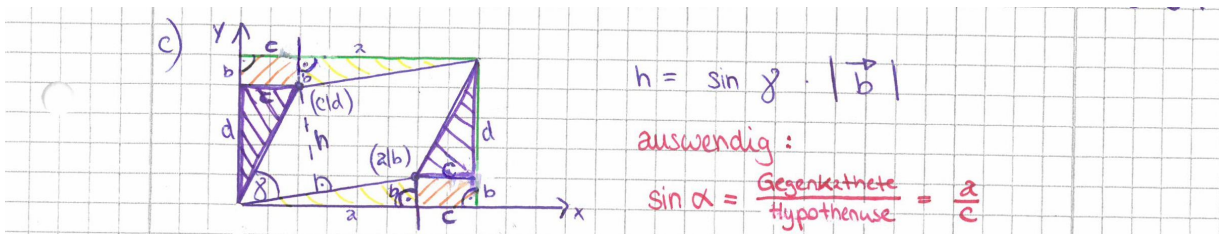 c)
y
c
a
b
b
c
(c|d)
d
h
d
(a|b)
c
γ
b
b
a
c
x
h = sin γ · |b⃗|
auswendig:
sin α = Gegenkathete / Hypothenuse = a / c